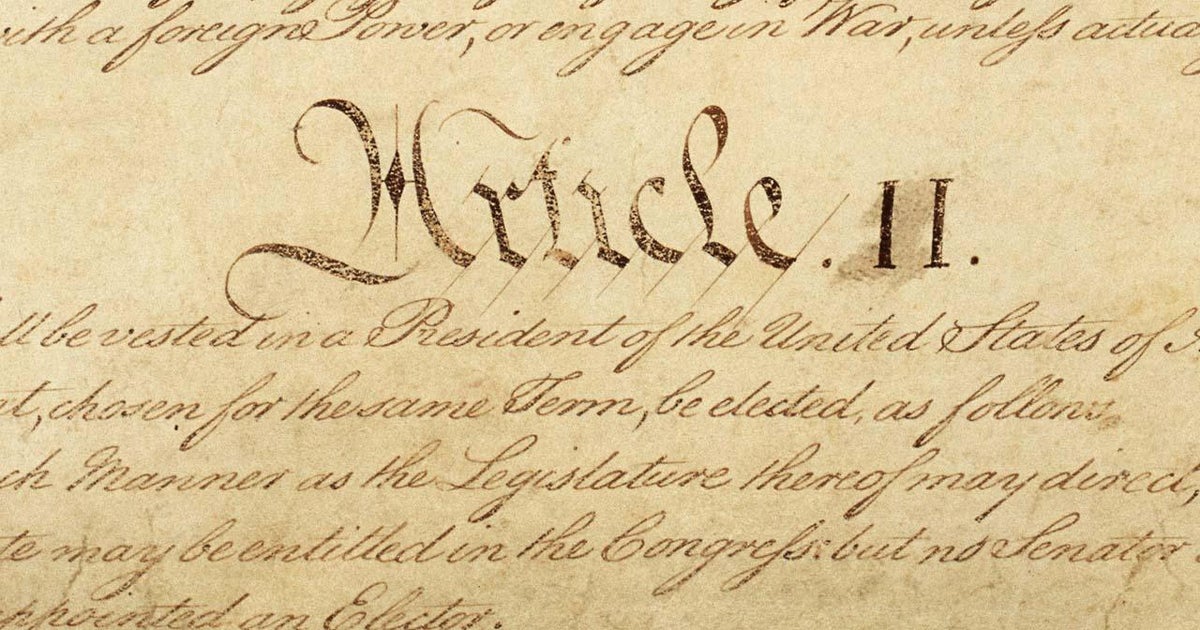 with a foreign Power, or engage in War, unleſs actua
Article. II.
ll be vested in a President of the United States of A
nt, chosen for the same Term, be elected, as follows
ch Manner as the Legislature thereof may direct,
te may be entitled in the Congreſs: but no Senator
appointed an Elector.